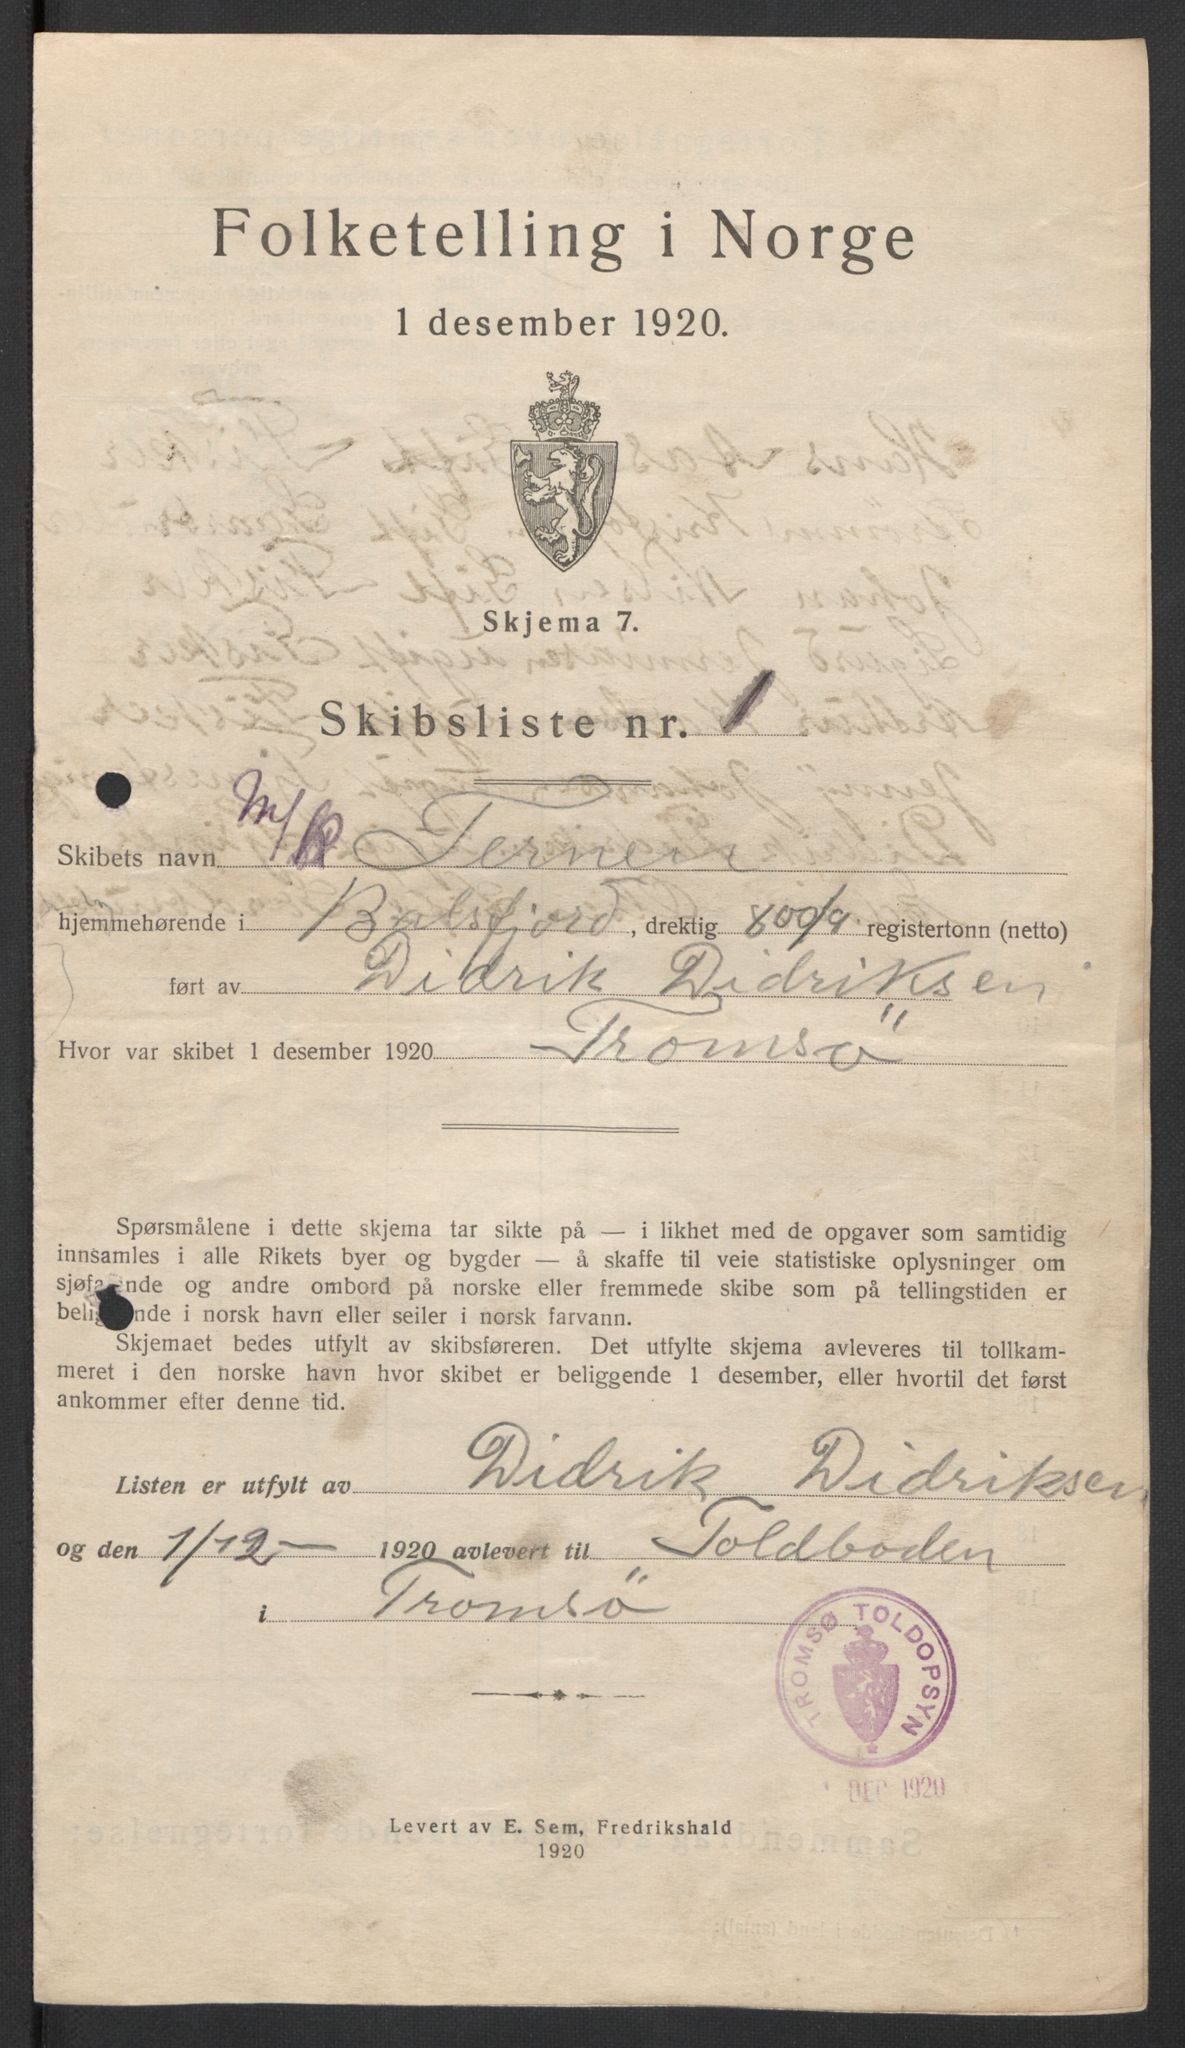 Folketelling i Norge
1 desember 1920.
Skjema 7.
Skibsliste nr. 1
Skibets navn M/K Ternen
hjemmehørende i Balsfjord, drektig registertonn (netto)
ført av Didrik Didriksen
Hvor var skibet 1 desember 1920 Tromsö
Spørsmålene i dette skjema tar sikte på — i likhet med de opgaver som samtidig
innsamles i alle Rikets byer og bygder — å skaffe til veie statistiske oplysninger om
sjøfarende og andre ombord på norske eller fremmede skibe som på tellingstiden er
beliggende i norsk havn eller seiler i norsk farvann.
Skjemaet bedes utfylt av skibsføreren. Det utfylte skjema avleveres til tollkam-
meret i den norske havn hvor skibet er beliggende 1 desember, eller hvortil det først
ankommer efter denne tid.
Listen er utfylt av Didrik Didriksen
og den 1/12- 1920 avlevert til Toldboden
i Tromsö
TROMSØ TOLDOPSYN
1 DEC 1920
Levert av E. Sem, Fredrikshald
1920